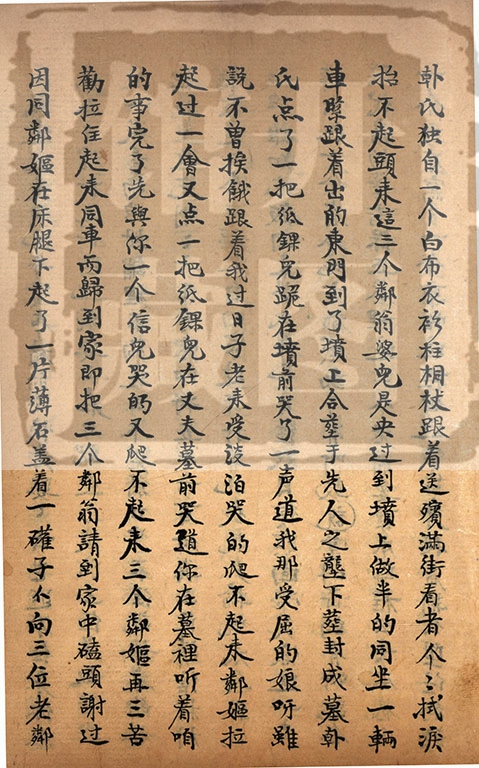 卦氏独自一个白布衣衫柱桐杖跟着送殯滿街看者个々拭淚
抬不起頭来這三个鄰翁婆兒是央过到墳上做半的同坐一輌
車罤跟着出的東門到了墳上合塟于先人之壟下塟封成墓卦
氏点了一把纸錁兒跪在墳前哭了一声道我那受屈的娘呀雖
說不曽挨餓跟着我过日子老来受淡泊哭的爬不起来鄰嫗拉
起过一會又点一把纸錁兒在丈夫墓前哭道你在墓裡听着咱
的事完了先與你一个信兒哭的又爬不起来三个鄰嫗再三苦
勸拉住起来同車而歸到家即把三个鄰翁請到家中磕頭謝过
因同鄰嫗在床腿下起了一片薄石盖着一礶子仆向三位老鄰